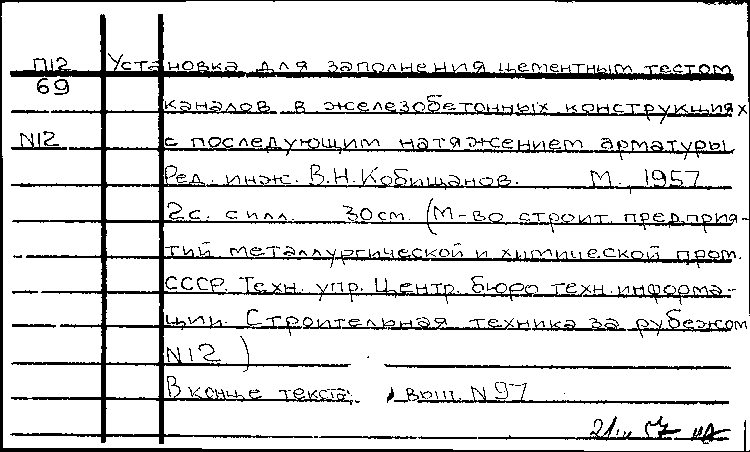 П12 Установка для заполнения цементным тестом
69
каналов в железобетонных конструкциях
N12 с последующим натяжением арматуры
Ред. инж. В.Н.Кобищанов. М., 1957
2с. с илл. 30см. (М-во строит. предприя-
тий металлургической и химической пром.
СССР. Техн. упр. Центр. бюро техн. информа-
ции. Строительная техника за рубежом
N12)
В конце текста: вып. N97